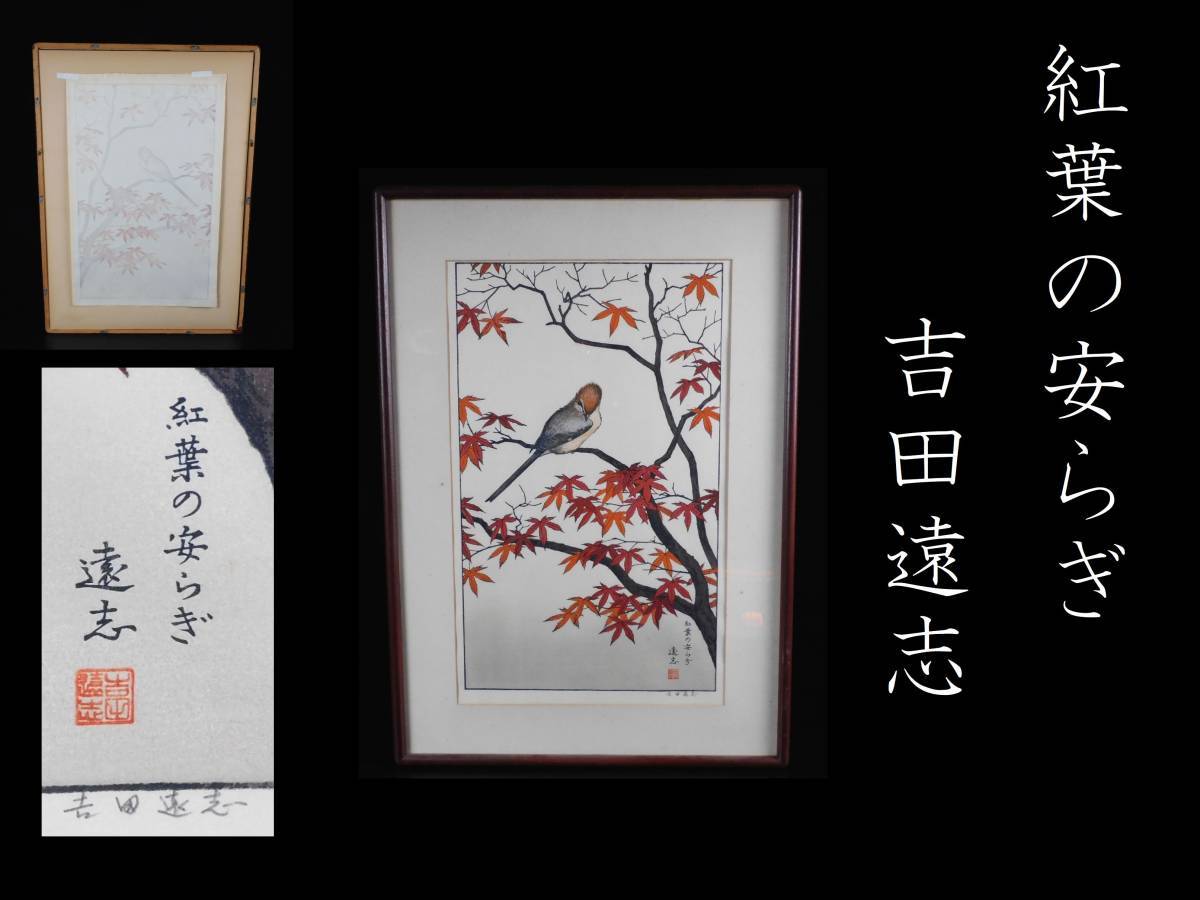 紅葉の安らぎ
吉田遠志
紅葉の安らぎ
遠志
吉田遠志
吉田遠志
紅葉の安らぎ
遠志
吉田遠志